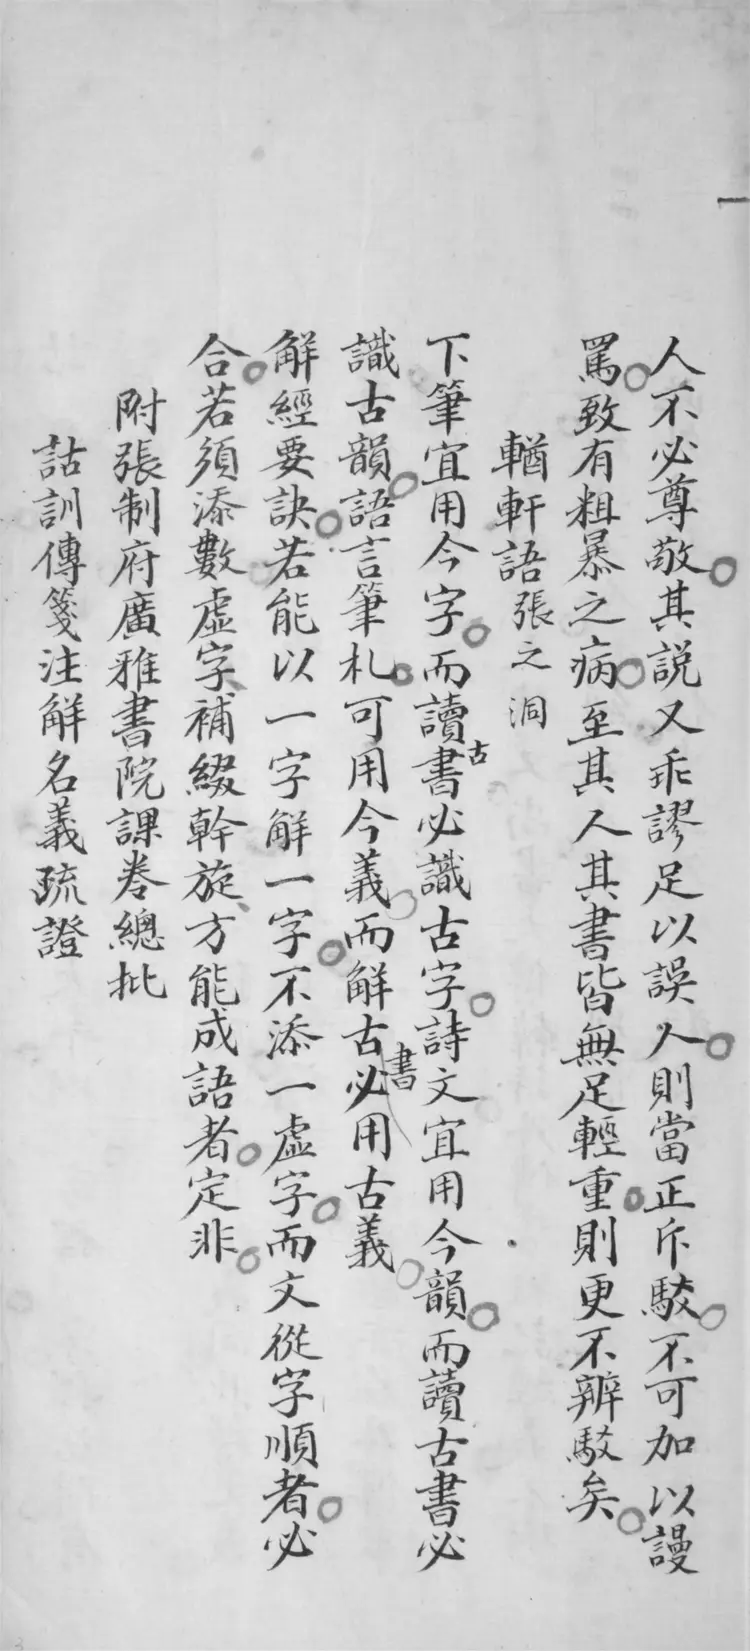 人不必尊敬其説又乖謬足以誤人則當正斥駁不可加以謾
罵致有粗暴之病至其人其書皆無足輕重則更不辨駁矣
輶軒語張之洞
下筆宜用今字而讀古書必識古字詩文宜用今韻而讀古書必
識古韻語言筆札可用今義而解古書必用古義
解經要訣若能以一字解一字不添一虛字而文從字順者必
合若須添數虛字補綴斡旋方能成語者定非
附張制府廣雅書院課卷總批
詁訓傳箋注解名義疏證